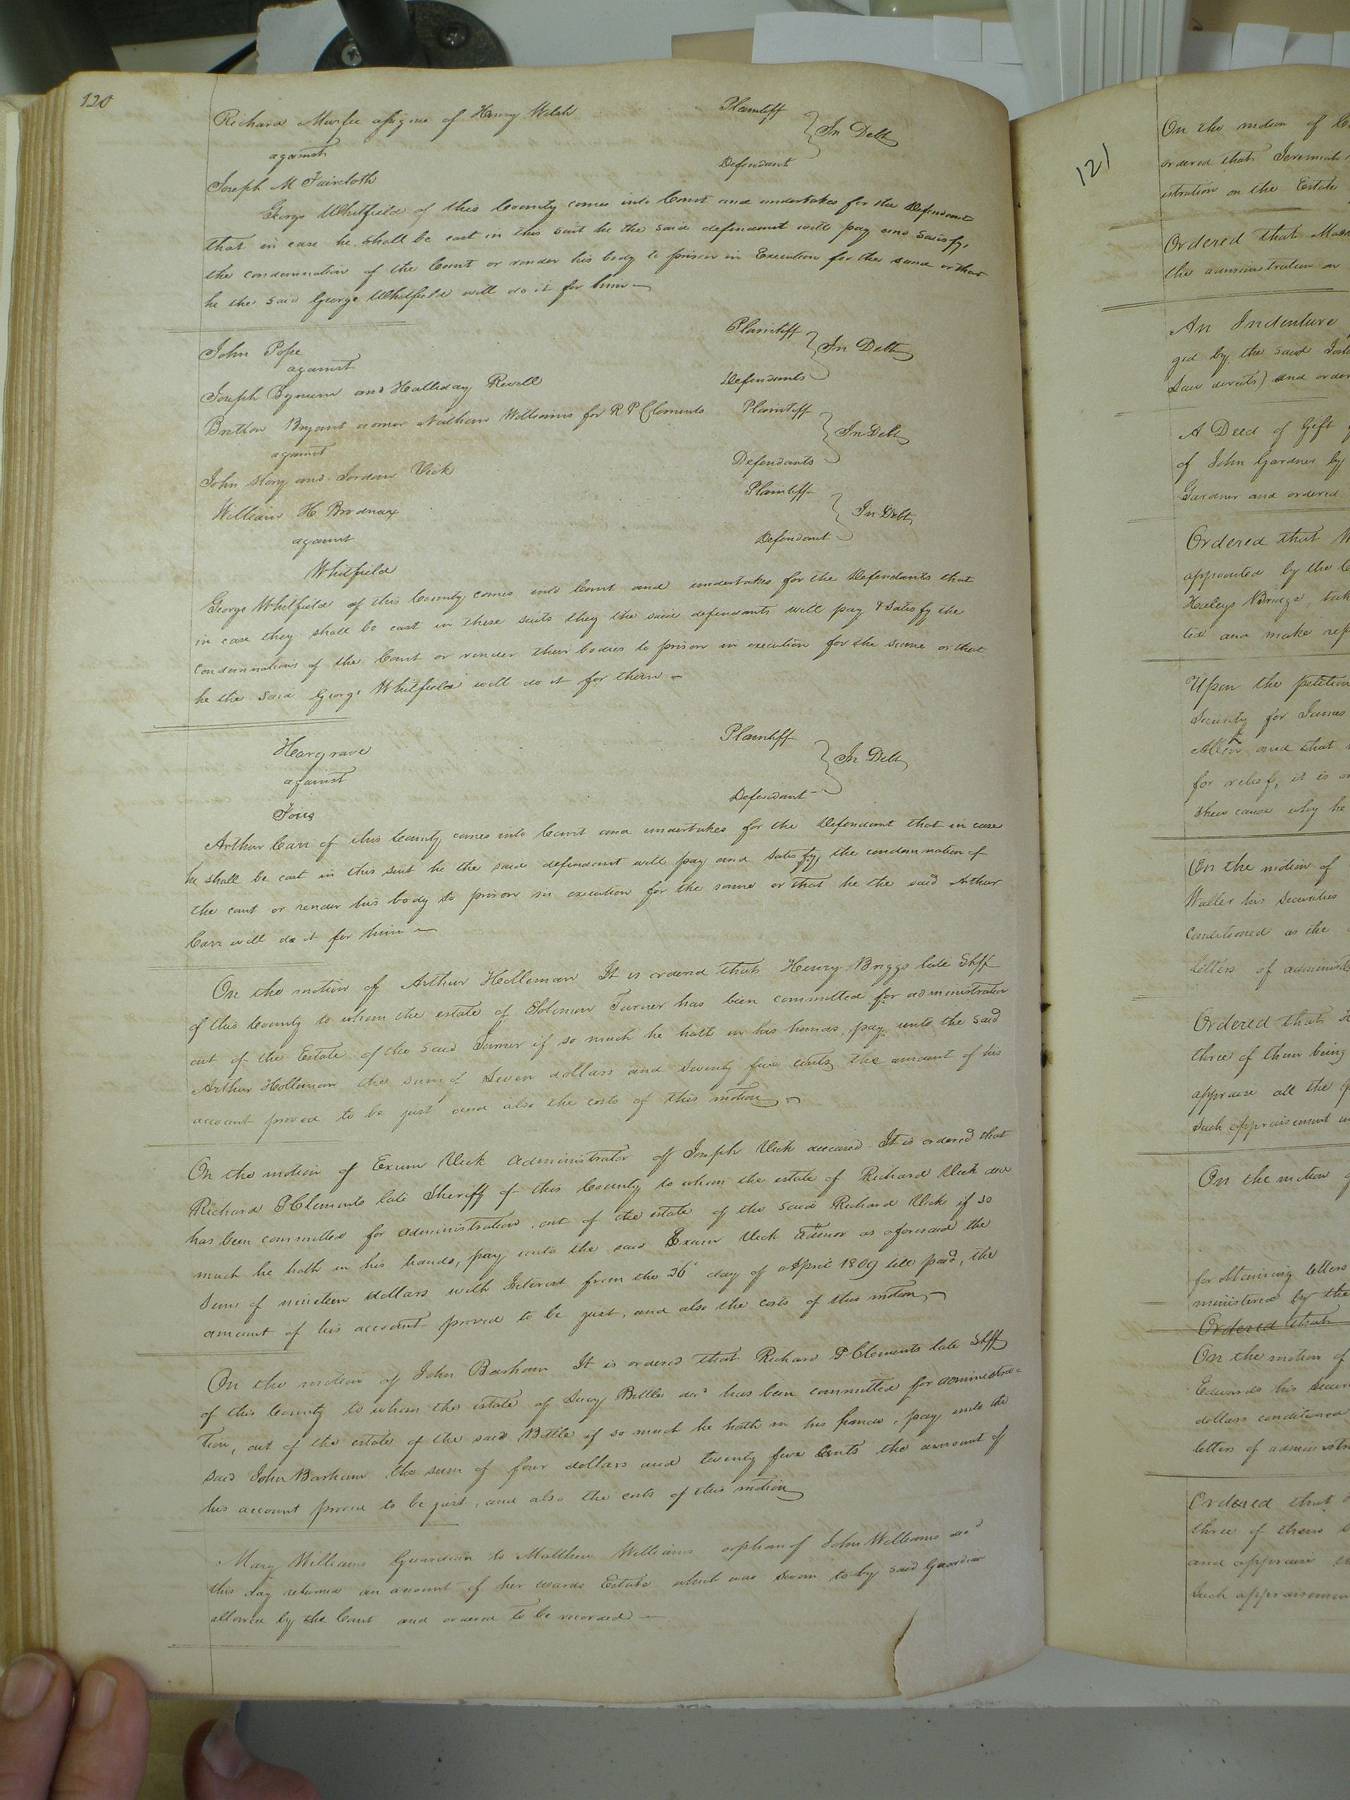 120
Richard Murfee assignee of Henry Welsh Plaintiff
against In Debt
Joseph M Faircloth Defendant
George Whitfield of this County comes into Court and undertakes for the Defendant
that in case he shall be cast in this suit he the said defendant will pay and satisfy
the condemnation of the Court or render his body to prison in Execution for the same or that
he the said George Whitfield will do it for him
John Pope Plaintiff
against In Debt
Joseph Bynum and Halliday Revell Defendants
Britton Bryant Nathan Williams for R P Clements Plaintiff
against In Debt
John Story and Jordan Vick Defendants
William H. Brodnax Plaintiff
against In Debt
Whitfield Defendant
George Whitfield of this County comes into Court and undertakes for the Defendants that
in case they shall be cast in these suits they the said defendants will pay & satisfy the
condemnations of the Court or render their bodies to prison in execution for the same or that
he the said George Whitfield will do it for them
Hargrave Plaintiff
against In Debt
Defendant
Arthur Carr of this County comes into Court and undertakes for the Defendant that in case
he shall be cast in this suit he the said defendant will pay and satisfy the condemnation of
the court or render his body to prison in execution for the same or that he the said Arthur
Carr will do it for him
On the motion of Arthur Holleman It is ordered that Henry Briggs late Shff
of this County to whom the estate of Solomon Turner has been committed for administration
out of the Estate of the said Turner if so much he hath in his hands, pay unto the said
Arthur Holleman the sum of Seven dollars and Seventy five cents the amount of his
account proved to be just and also the costs of this motion
On the motion of Exum Vick Administrator of Joseph Vick deceased It is ordered that
Richard P Clements late Sheriff of this County to whom the estate of Richard Vick decd
has been committed for administration, out of the estate of the said Richard Vick if so
much he hath in his hands, pay unto the said Exum Vick Admor as aforesaid the
Sum of nineteen dollars with Interest from the 26th day of April 1809 till paid, the
amount of his account proved to be just, and also the costs of this motion
On the motion of John Barham It is ordered that Richard P Clements late Shff
of this County to whom the estate of Lucy Battle decd has been committed for administra=
tion, out of the estate of the said Battle if so much he hath in his hands, pay unto the
said John Barham the sum of four dollars and twenty five Cents the amount of
his account proved to be just, and also the costs of this motion
Mary Williams Guardian to Matthew Williams orphan of John Williams decd
this day returned an account of her wards Estate which was sworn to by said Guardian
allowed by the Court and ordered to be recorded
121
On the motion of
ordered that Jeremiah
istration on the Estate
Ordered that
the administration on
An Indenture
ged by the said
Law directs) and order
A Deed of Gift
of John Gardner by
Gardner and ordered
Ordered that
appointed by the
Bridge,
and make rep
Upon the petition
Security for James
Allen and that
for relief, it is
shew cause why he
On the motion of
Waller his Securities
conditioned as the
letters of administ
Ordered that
three of them being
appraise all the
such appraisement
On the motion
for obtaining letters
ministered by the
Ordered that
On the motion of
Edwards his Secur
dollars conditioned
letters of administr
Ordered that
three of them
and appraise
Such appraisement